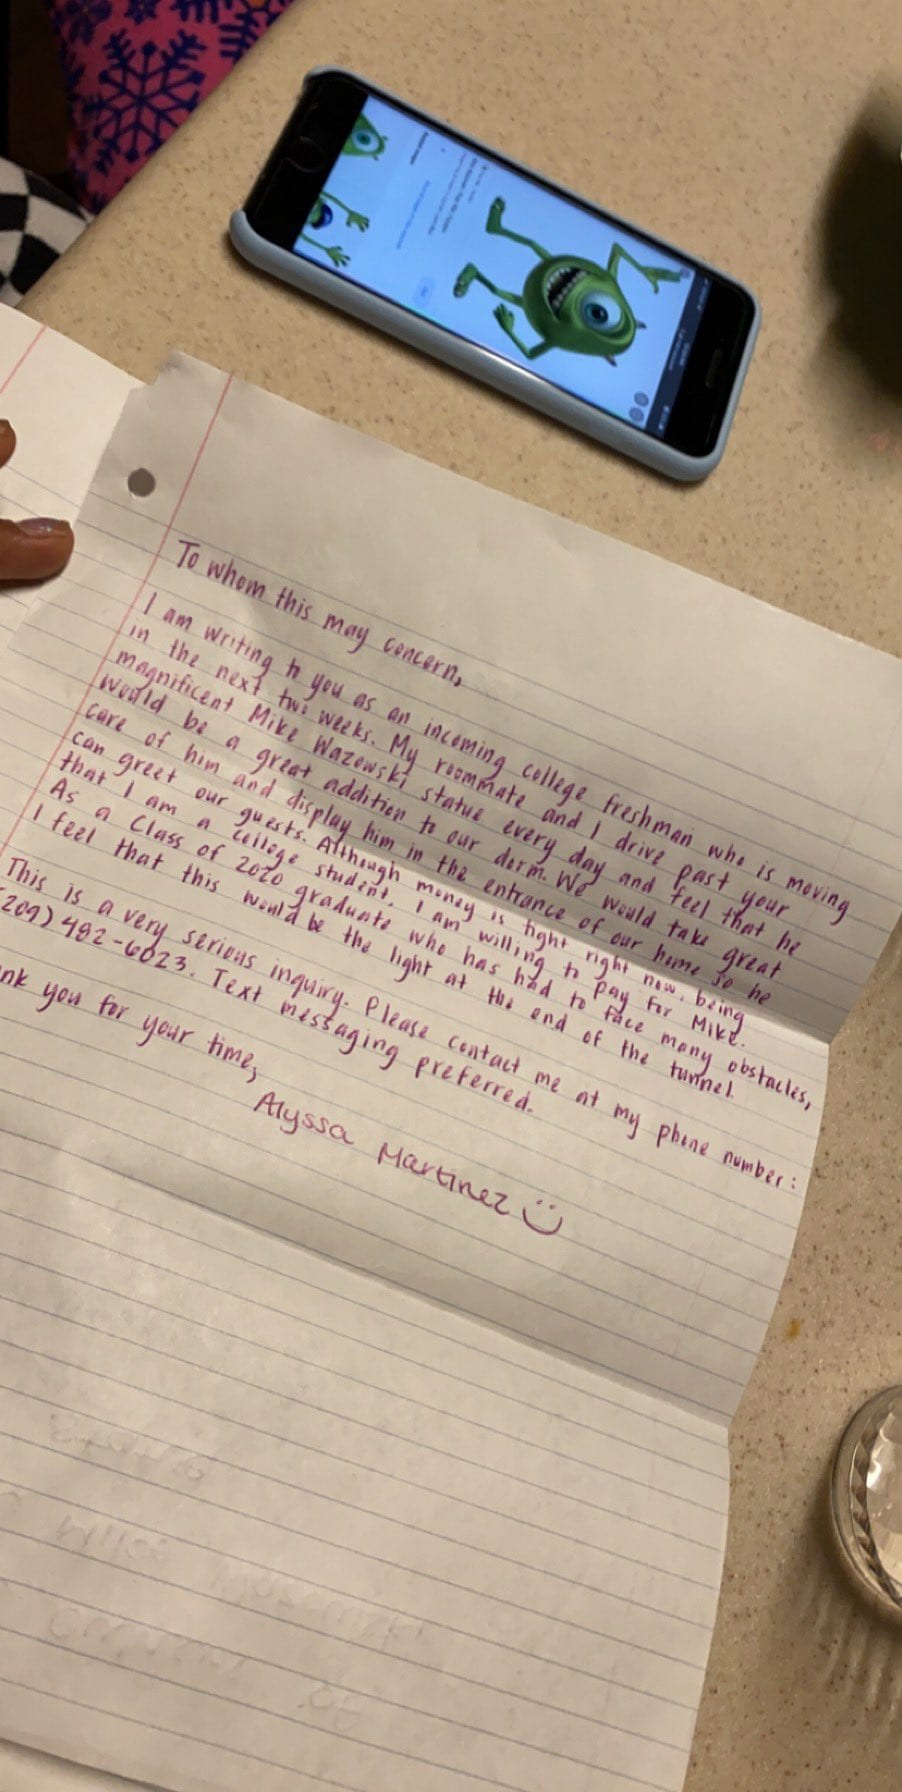 To whom this may concern,
I am writing to you as an incoming college freshman who is moving
in the next two weeks. My roommate and I drive past your
magnificent Mike Wazowski statue every day and feel that he
would be a great addition to our dorm. We would take great
care of him and display him in the entrance of our home so he
can greet our guests. Although money is tight right now, being
that I am a college student, I am willing to pay for Mike.
As a Class of 2020 graduate who has had to face many obstacles,
I feel that this would be the light at the end of the tunnel.
This is a very serious inquiry. Please contact me at my phone number:
(209) 482-6023. Text messaging preferred.
ank you for your time,
Alyssa Martinez